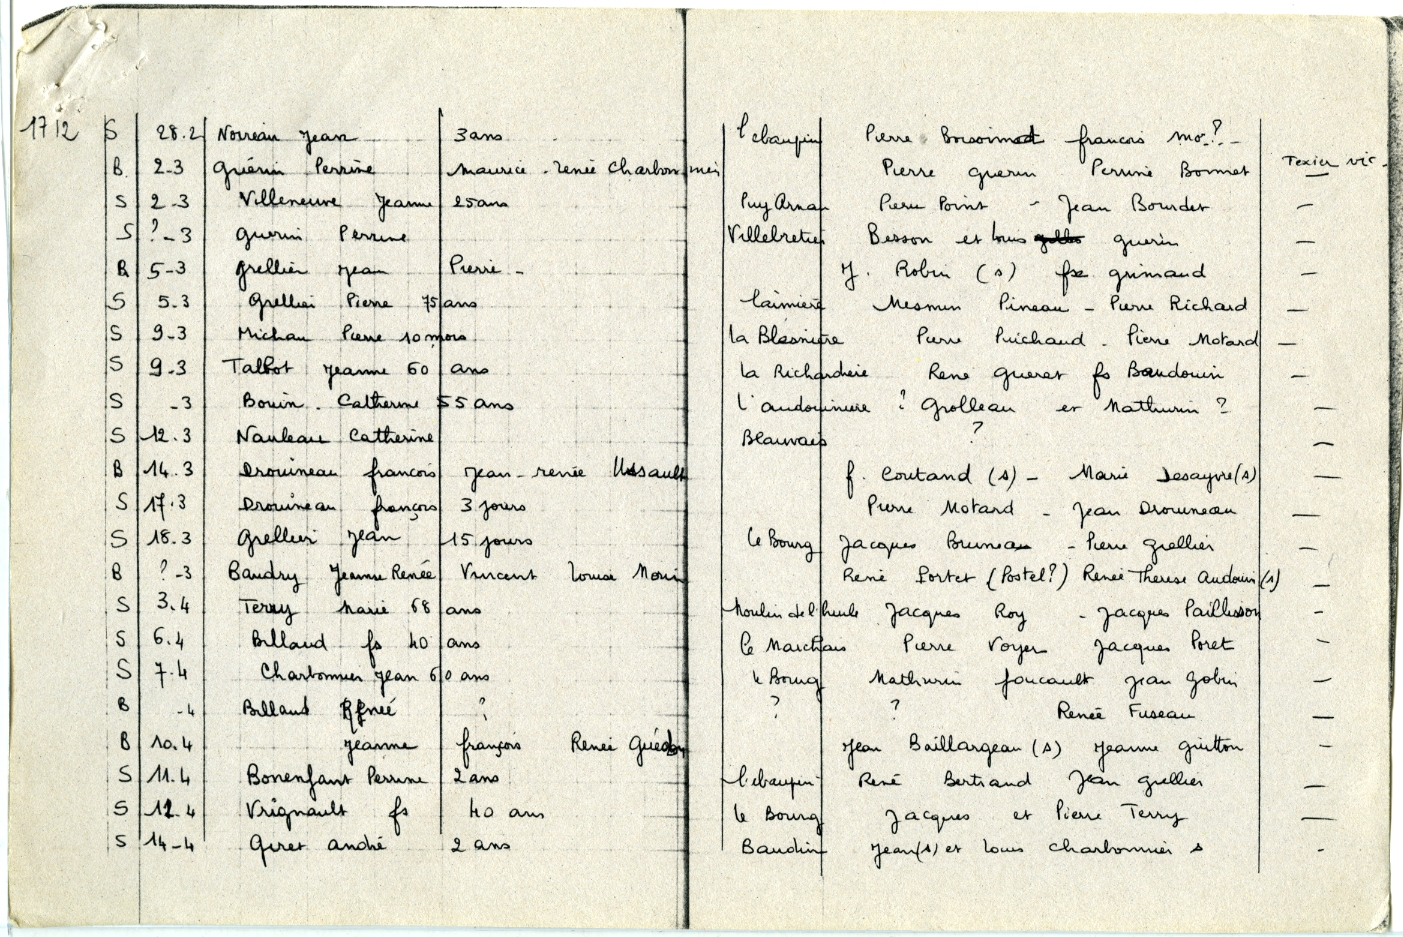 1712 S 28.2 Noireau Jean 3 ans l'ebaupin Pierre françois Mo?-
B. 2-3 Guérin Perrine Maurice - renée Charbonnier Pierre guerin - Perrine Bonnet Texier vic -
S 2-3 Villeneuve Jeanne 25 ans Puy Arnau Pierre Point - Jean Bourdet -
S ?-3 Guerin Perrine Villebretier Besson et louis guerin -
B 5-3 Grellier Jean Pierre - J. Robin (s) fse grimaud -
S 5.3 Grellier Pierre 75 ans Mesmin Pineau - Pierre Richard -
S 9-3 Michau Pierre 10 mois la Blesnière Pierre Puichaud - Pierre Motard -
S 9.3 Talbot Jeanne 60 ans la Richardière René Gueret fs Baudouin -
S -3 Bouin. Catherine 55 ans l'audouiniere ? Grolleau et Mathurin ? -
S 12.3 Nauleau Catherine Beauvais ? -
B 14.3 Drouineau françois Jean - renée Ussault f. Coutand (s) - Marie Desayvre (s) -
S 17.3 Drouineau françois 3 jours Pierre Motard - Jean Drouineau -
S 18.3 Grellier Jean 15 jours le Bourg Jacques Bruneau - Pierre Grellier -
B ?-3 Baudry Jeanne Renée Vincent Louise Morin René Portet (Postel?) Renée Therese Audouin (s) -
S 3.4 Terry Marie 68 ans Moulin de l'heule Jacques Roy - Jacques Paillusson -
S 6.4 Billaud fs 40 ans le Marchais Pierre Voyer Jacques Poret -
S 7.4 Charbonnier Jean 60 ans le Bourg Mathurin foucault Jean Gobin -
B -4 Billaud Renée ? ? ? Renée Fuseau -
B 10.4 Jeanne françois Renée Jean Baillargeau (s) Jeanne guitton -
S 11.4 Bonenfant Perrine 2 ans l'ebaupin René Bertrand Jean grellier -
S 12.4 Vrignault fs 40 ans le Bourg Jacques et Pierre Terry -
S 14-4 Giret andré 2 ans Baudin Jean (s) et louis charbonnier s -